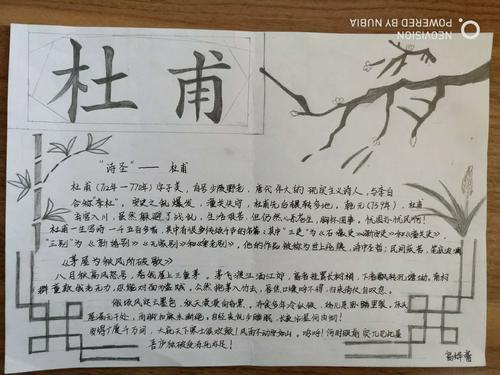 NEOVISION
POWERED BY NUBIA
杜甫
"诗圣"—— 杜甫
杜甫(712年—770年)字子美,自号少陵野老,唐代伟大的现实主义诗人,与李白
合称"李杜"。安史之乱爆发,潼关失守,杜甫先后辗转多地,乾元(759年),杜甫
弃官入川,虽然躲避了战乱,生活艰苦,但仍然心系苍生,胸怀国事,忧国亦忧民啊!
杜甫一生写有一千五百多首,其中有很多传颂千古的名篇;其中"三吏"为《石壕吏》《新安吏》和《潼关吏》,
"三别"为《新婚别》《无家别》和《垂老别》,他的作品被称为世上疮痍,诗中圣哲;民间疾苦,笔底波澜
《茅屋为秋风所破歌》
八月秋高风怒号,卷我屋上三重茅。茅飞渡江洒江郊,高者挂罥长林梢,下者飘转沉塘坳。南村
群童欺我老无力,忍能对面为盗贼,公然抱茅入竹去,唇焦口燥呼不得,归来倚仗自叹息。
俄顷风定云墨色,秋天漠漠向昏黑,布衾多年冷似铁,娇儿恶卧踏里裂。床头
屋漏无干处,雨脚如麻未断绝,自经丧乱少睡眠,长夜沾湿何由彻!
安得广厦千万间,大庇天下寒士俱欢颜!风雨不动安如山。呜呼!何时眼前突兀见此屋
吾庐独破受冻死亦足!